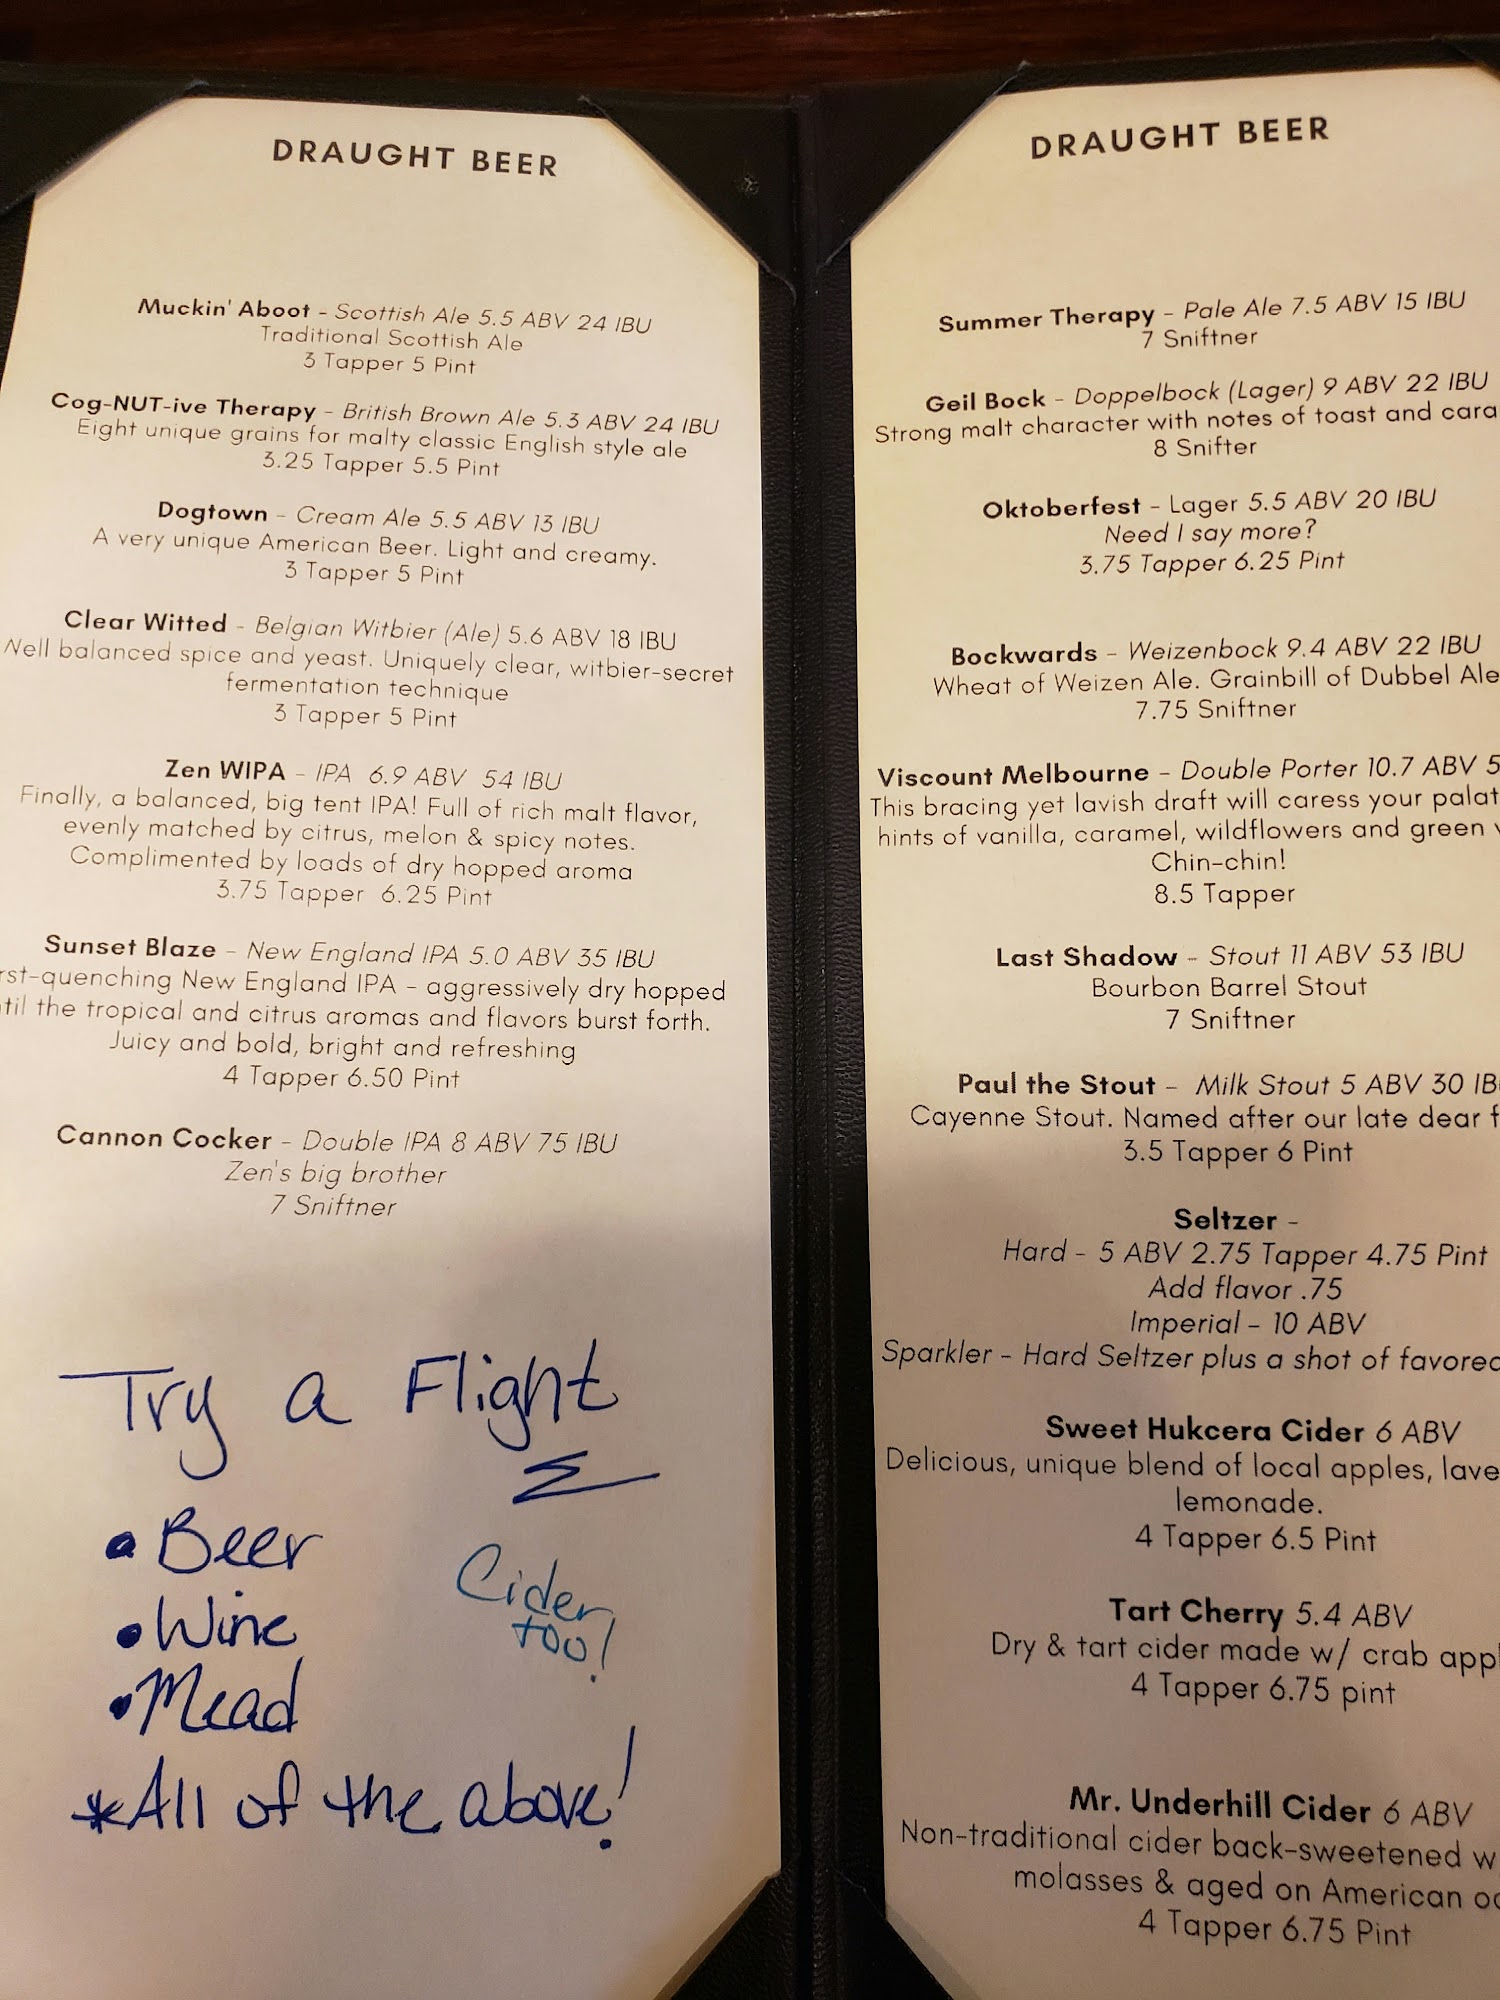 DRAUGHT BEER
Muckin' Aboot - Scottish Ale 5.5 ABV 24 IBU
Traditional Scottish Ale
3 Tapper 5 Pint
Cog-NUT-ive Therapy - British Brown Ale 5.3 ABV 24 IBU
Eight unique grains for malty classic English style ale
3.25 Tapper 5.5 Pint
Dogtown - Cream Ale 5.5 ABV 13 IBU
A very unique American Beer. Light and creamy.
3 Tapper 5 Pint
Clear Witted - Belgian Witbier (Ale) 5.6 ABV 18 IBU
Well balanced spice and yeast. Uniquely clear, witbier-secret
fermentation technique
3 Tapper 5 Pint
Zen WIPA - IPA 6.9 ABV 54 IBU
Finally, a balanced, big tent IPA! Full of rich malt flavor,
evenly matched by citrus, melon & spicy notes.
Complimented by loads of dry hopped aroma
3.75 Tapper 6.25 Pint
Sunset Blaze - New England IPA 5.0 ABV 35 IBU
rst-quenching New England IPA - aggressively dry hopped
til the tropical and citrus aromas and flavors burst forth.
Juicy and bold, bright and refreshing
4 Tapper 6.50 Pint
Cannon Cocker - Double IPA 8 ABV 75 IBU
Zen's big brother
7 Sniftner
Try a Flight
• Beer
• Wine
• Mead
Cider
too!
*All of the above!
DRAUGHT BEER
Summer Therapy - Pale Ale 7.5 ABV 15 IBU
7 Sniftner
Geil Bock - Doppelbock (Lager) 9 ABV 22 IBU
Strong malt character with notes of toast and cara
8 Snifter
Oktoberfest - Lager 5.5 ABV 20 IBU
Need I say more?
3.75 Tapper 6.25 Pint
Bockwards - Weizenbock 9.4 ABV 22 IBU
Wheat of Weizen Ale. Grainbill of Dubbel Ale
7.75 Sniftner
Viscount Melbourne - Double Porter 10.7 ABV 5
This bracing yet lavish draft will caress your palat
hints of vanilla, caramel, wildflowers and green
Chin-chin!
8.5 Tapper
Last Shadow - Stout 11 ABV 53 IBU
Bourbon Barrel Stout
7 Sniftner
Paul the Stout - Milk Stout 5 ABV 30 IB
Cayenne Stout. Named after our late dear f
3.5 Tapper 6 Pint
Seltzer -
Hard - 5 ABV 2.75 Tapper 4.75 Pint
Add flavor .75
Imperial - 10 ABV
Sparkler - Hard Seltzer plus a shot of favored
Sweet Hukcera Cider 6 ABV
Delicious, unique blend of local apples, lave
lemonade.
4 Tapper 6.5 Pint
Tart Cherry 5.4 ABV
Dry & tart cider made w/ crab appl
4 Tapper 6.75 pint
Mr. Underhill Cider 6 ABV
Non-traditional cider back-sweetened w
molasses & aged on American oa
4 Tapper 6.75 Pint